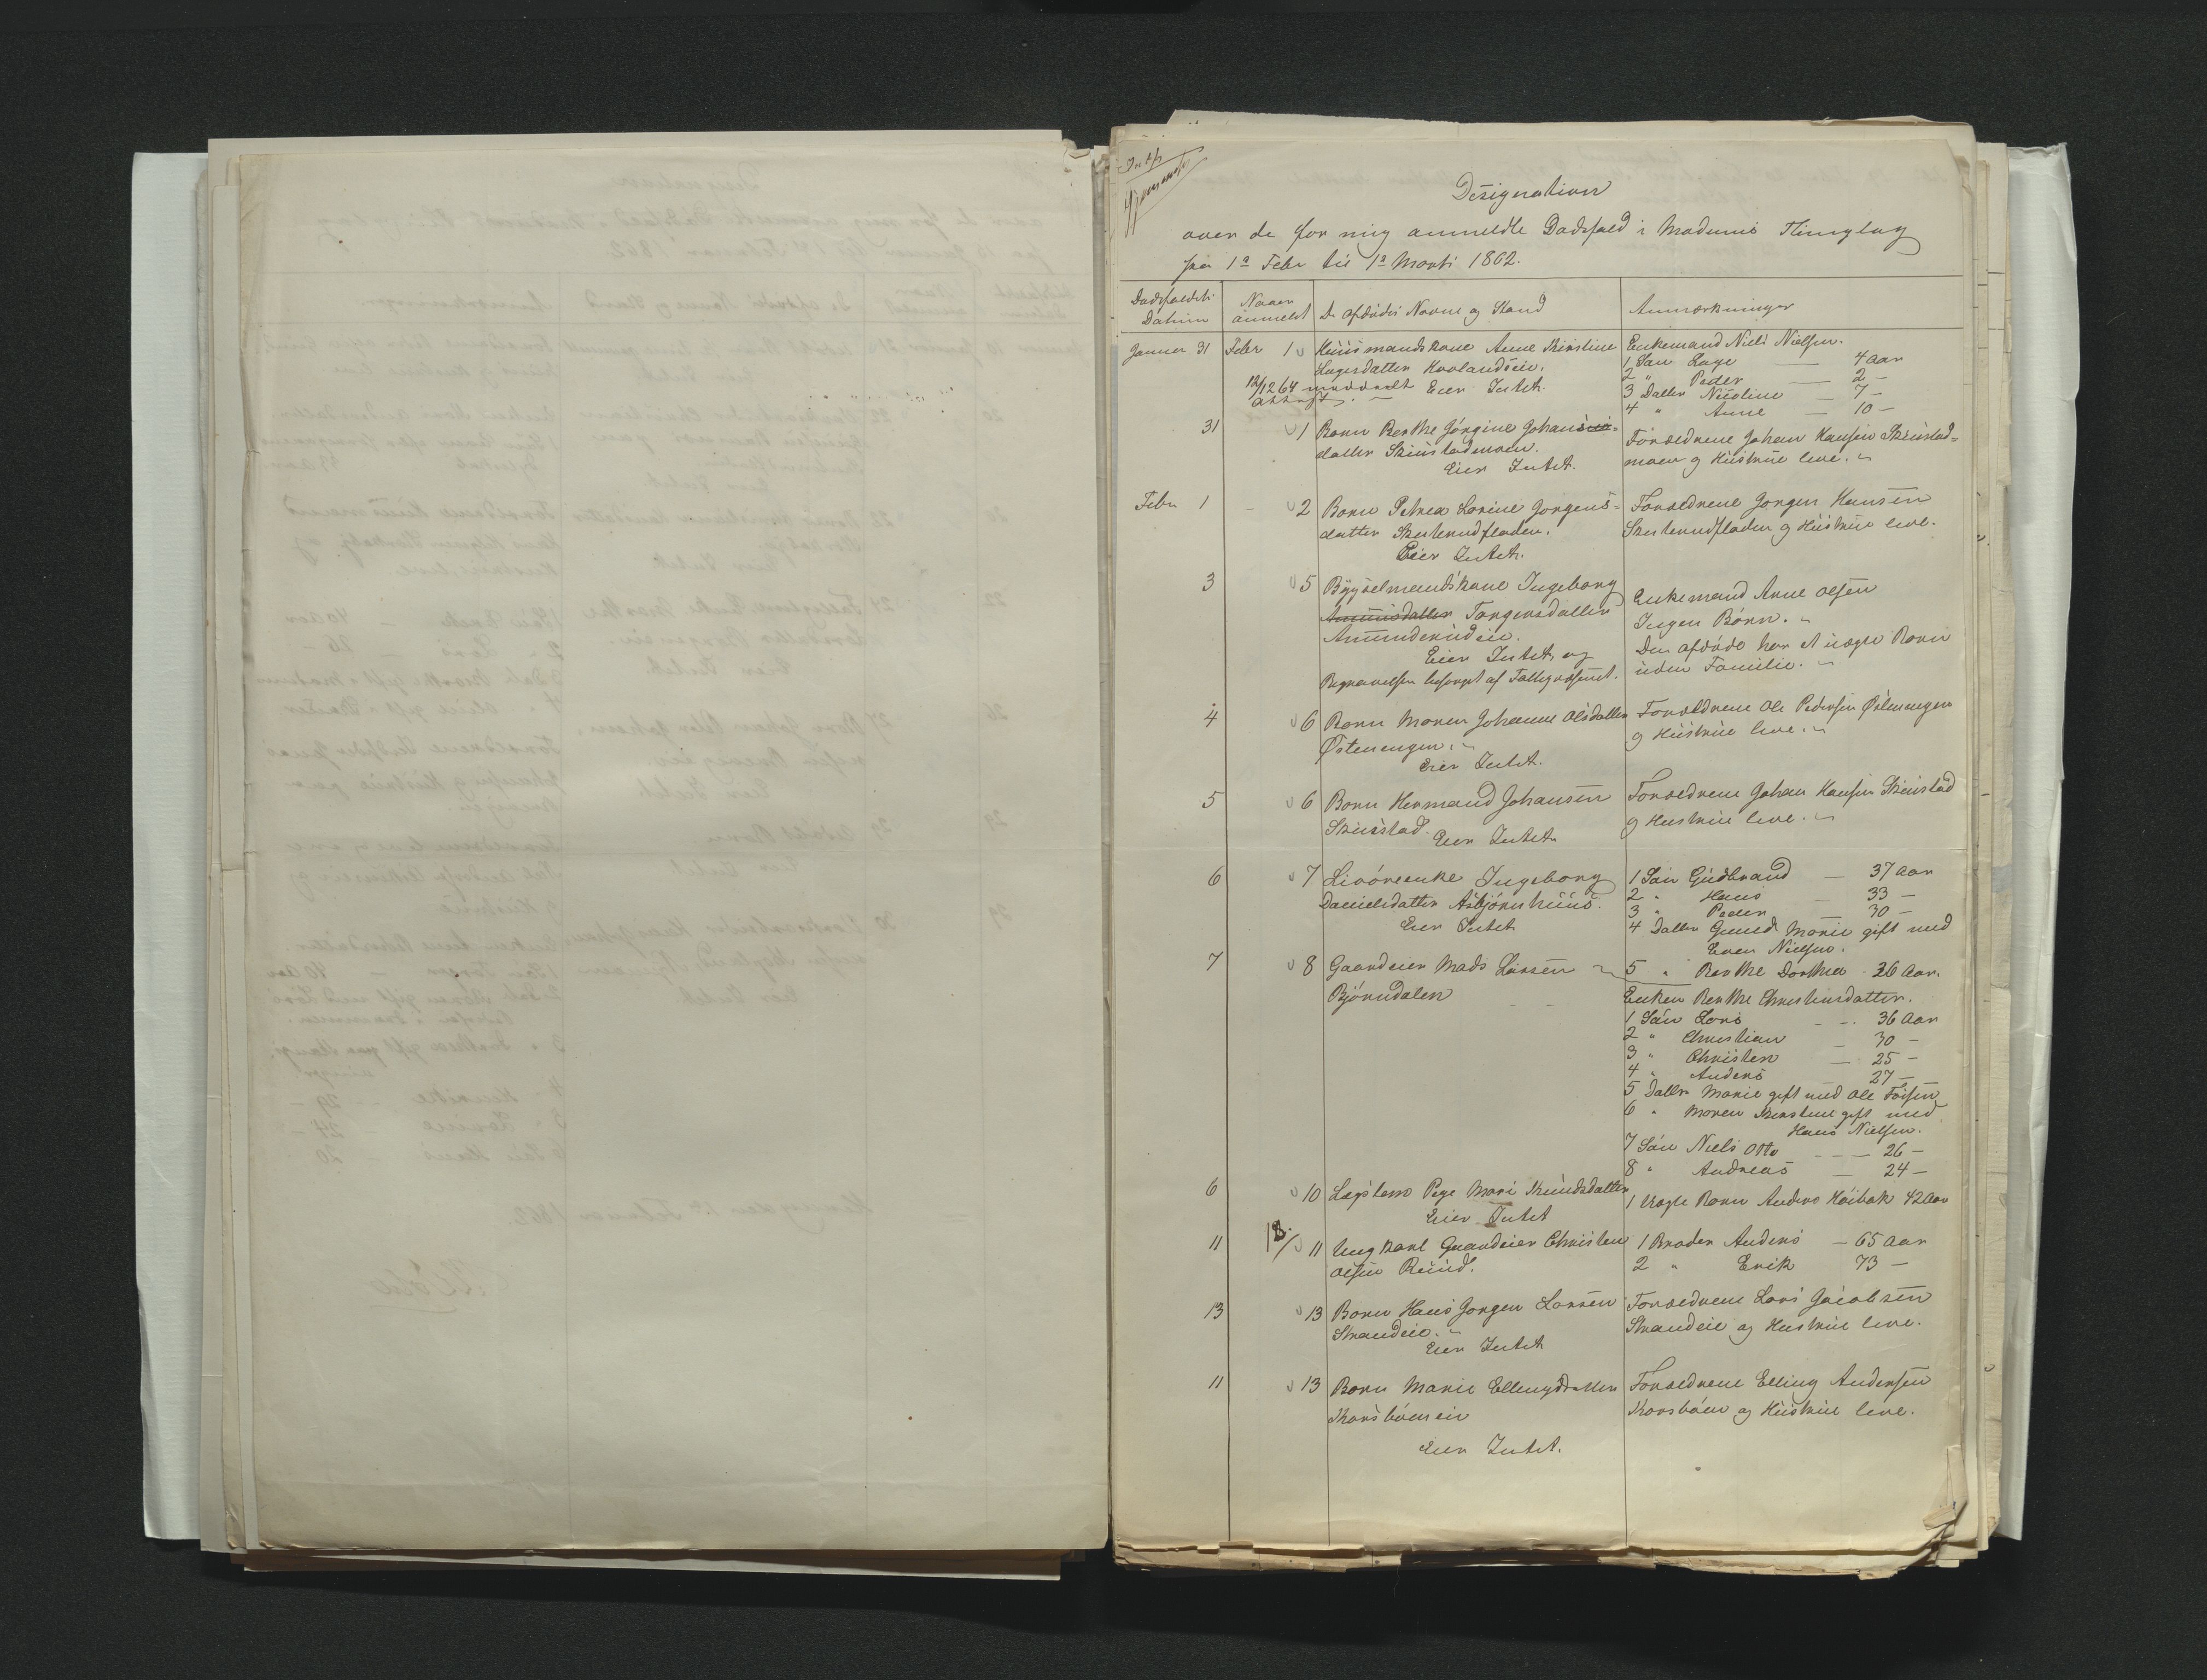 Designation
over de for mig anmeldte Dødsfald i Modums Thinglag
fra 1ᵃ Febr til 1ᵃ Marts 1862.
Dødsfaldets Datum
Naar anmeldt
De afdødes Navne og Stand
Anmærkninger
Januar 31 Febr 1 Huusmandskone Anne Kirstine
Lagesdatter Hovlandseie.
12/12 64 meddeelt Eier Intet.
attest
Enkemand Niels Nielsen.
1 Søn Lage — 4 Aar
2 " Peder — 2 —
3 Datter Nicoline — 7 —
4 " Anne — 10 —
31 1 Barn Berthe Jørgine Johans-
datter Skuistadmoen.
Eier Intet.
Forældrene Johan Hansen Skuistad-
moen og Hustrue leve.
Febr 1 2 Barn Petrea Lovine Jørgens-
datter Skuterudfladen.
Eier Intet.
Forældrene Jørgen Hansen
Skuterudfladen og Hustrue leve.
3 5 Bygselmandskone Ingeborg
Torgersdatter
Amunderudeie.
Eier Intet, og
Begravelsen besørget af Fattigvæsenet.
Enkemand Arne Olsen
Ingen Børn.
Den afdøde har et uægte Barn
uden Familie.
4 6 Barn Maren Johanne Olsdatter
Østenengen.
Eier Intet.
Forældrene Ole Pedersen Østenengen
og Hustrue leve.
5 6 Barn Hermand Johansen
Skuistad.
Eier Intet.
Forældrene Johan Hansen Skuistad
og Hustrue leve.
6 7 Livøreenke Ingeborg
Danielsdatter Asbjørnshuus.
Eier Intet
1 Søn Gudbrand — 37 Aar
2 " Hans — 33 —
3 " Peder — 30 —
4 Datter Gunild Marie gift med
Even Nielsen.
5 " Berthe Dorthea 26 Aar.
7 8 Gaardeier Mads Larsen
Bjørndalen
Enken Berthe Christensdatter.
1 Søn Lars — 36 Aar
2 " Christian — 30 —
3 " Christen — 25 —
4 " Anders 27 —
5 Datter Marie gift med Ole
6 " Maren Kirstine gift med
Hans Nielsen.
7 Søn Niels Otto — 26 —
8 " Andreas — 24 —
6 10 Lægslem Pige Mari Knudsdatter
Eier Intet
1 Uægte Barn Anders Høibak 42 Aar
11 11 Ungkarl Gaardeier Christen
Olsen Ruud.
1 Broder Anders — 65 Aar
2 " Erik 73 —
13 13 Barn Hans Jørgen Larsen
Strandeie.
Eier Intet
Forældrene Lars Jacobsen
Strandeie og Hustrue leve.
11 13 Barn Marie Ellingsdatter
Korsbøeneie
Eier Intet.
Forældrene Elling Andersen
Korsbøen og Hustrue leve.